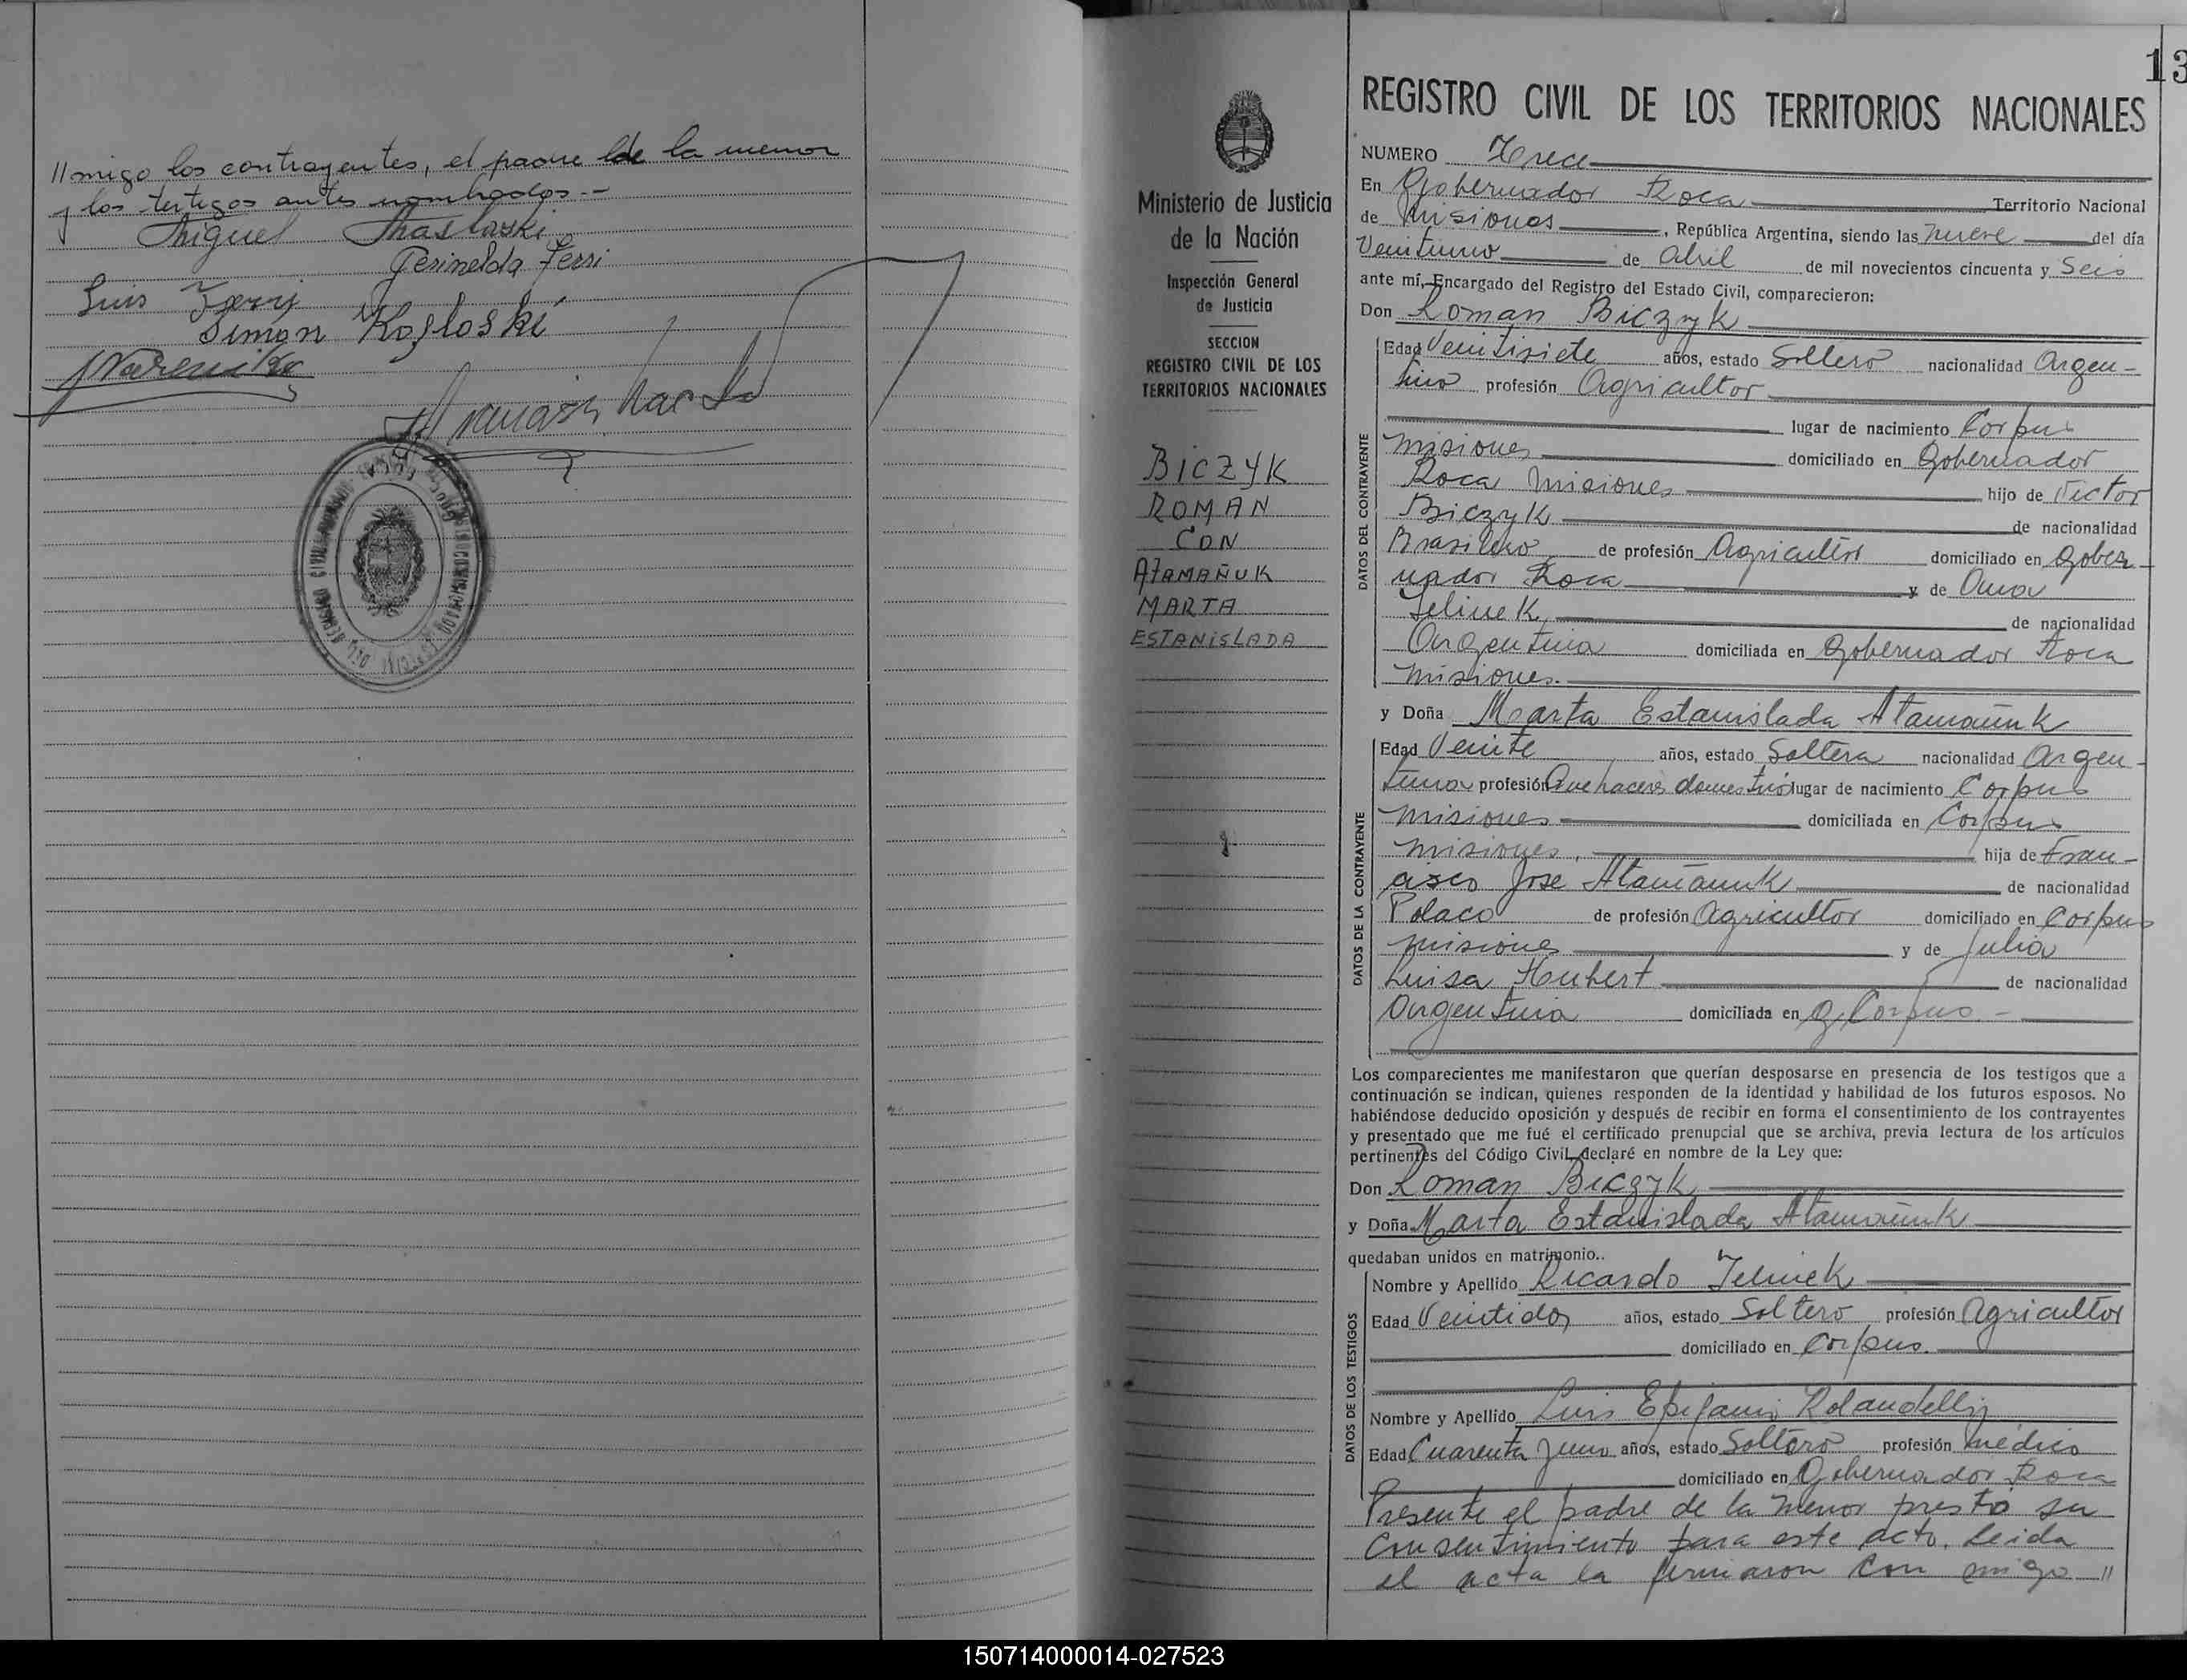 //migo los contrayentes, el padre de la menor
y los testigos antes nombrados.-
Miguel Maslaski
Gerinelda Ferri
Luis Ferri
Simon Kosloski
13
REGISTRO CIVIL DE LOS TERRITORIOS NACIONALES
Ministerio de Justicia
de la Nación
Inspección General
de Justicia
SECCION
REGISTRO CIVIL DE LOS
TERRITORIOS NACIONALES
BICZYK
ROMAN
CON
ATAMAÑUK
MARTA
ESTANISLADA
NUMERO Trece
En Gobernador Roca Territorio Nacional
de Misiones, República Argentina, siendo las nueve del día
Veintiuno de Abril de mil novecientos cincuenta y Seis
ante mí, Encargado del Registro del Estado Civil, comparecieron:
Don Roman Biczyk
DATOS DEL CONTRAYENTE
Edad Veintisiete años, estado Soltero nacionalidad Argen-
tino profesión Agricultor
lugar de nacimiento Corpus
Misiones domiciliado en Gobernador
Roca Misiones hijo de Victor
Biczyk de nacionalidad
Brasilero de profesión Agricultor domiciliado en Gober-
nador Roca y de Ana
Jelinek de nacionalidad
Argentina domiciliada en Gobernador Roca
Misiones.
y Doña Marta Estanislada Atamañuk
DATOS DE LA CONTRAYENTE
Edad Veinte años, estado Soltera nacionalidad Argen-
tina profesión Quehaceres domestico lugar de nacimiento Corpus
Misiones domiciliada en Corpus
Misiones, hija de Fran-
cisco Jose Atamañuk de nacionalidad
Polaco de profesión Agricultor domiciliado en Corpus
Misiones y de Julia
Luisa Hubert de nacionalidad
Argentina domiciliada en Corpus.-
Los comparecientes me manifestaron que querían desposarse en presencia de los testigos que a
continuación se indican, quienes responden de la identidad y habilidad de los futuros esposos. No
habiéndose deducido oposición y después de recibir en forma el consentimiento de los contrayentes
y presentado que me fué el certificado prenupcial que se archiva, previa lectura de los artículos
pertinentes del Código Civil, declaré en nombre de la Ley que:
Don Roman Biczyk
y Doña Marta Estanislada Atamañuk
quedaban unidos en matrimonio..
DATOS DE LOS TESTIGOS
Nombre y Apellido Ricardo Jelinek
Edad Veintidos años, estado Soltero profesión Agricultor
domiciliado en Corpus.
Nombre y Apellido Luis Epifanio Rolandelli
Edad Cuarenta y uno años, estado Soltero profesión médico
domiciliado en Gobernador Roca
Presente el padre de la menor prestó su
Consentimiento para este acto. Leida
el acta la firmaron con migo //
150714000014-027523